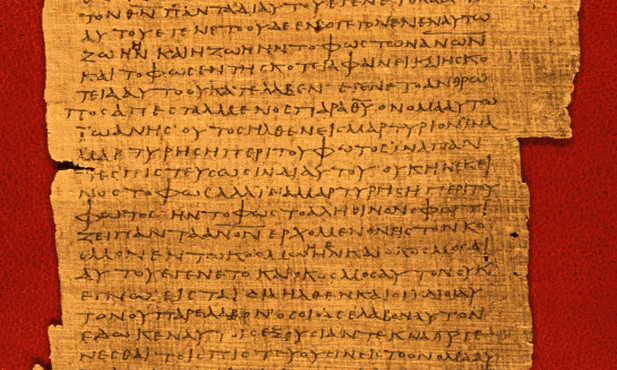 ΤΟΝΘΝΠΑΝΤΑΔΙΑΥΤΟΥΕΓΕΝΕΤΟΚΑΙ
ΑΥΤΟΥΕΓΕΝΕΤΟΟΥΔΕΕΝΟΓΕΓΟΝΕΝΕΝΑΥΤΩ
ΖΩΗΗΝΚΑΙΗΖΩΗΗΝΤΟΦΩϹΤΩΝΑΝΩΝ
ΚΑΙΤΟΦΩϹΕΝΤΗϹΚΟΤΕΙΑΦΑΙΝΕΙΚΑΙΗϹΚΟ
ΤΕΙΑΑΥΤΟΟΥΚΑΤΕΛΑΒΕΝ·ΕΓΕΝΕΤΟΑΝΘΡΩ
ΠΟϹΑΠΕϹΤΑΛΜΕΝΟϹΠΑΡΑΘΥΟΝΟΜΑΑΥΤΩ
ΪΩΑΝΗϹ·ΟΥΤΟϹΗΛΘΕΝΕΙϹΜΑΡΤΥΡΙΟΝΪΝΑ
ΜΑΡΤΥΡΗϹΗΠΕΡΙΤΟΥΦΩΤΟϹΙΝΑΠΑΝ
ΤΕϹΠΙϹΤΕΥϹΩϹΙΝΔΙΑΥΤΟΥ·ΟΥΚΗΝΕΚΕΙ
ΝΟϹΤΟΦΩϹΑΛΛΙΝΑΜΑΡΤΥΡΗϹΗΠΕΡΙΤΟΥ
ΦΩΤΟϹ·ΗΝΤΟΦΩϹΤΟΑΛΗΘΙΝΟΝΟΦΩΤΙ
ΖΕΙΠΑΝΤΑΑΝΟΝΕΡΧΟΜΕΝΟΝΕΙϹΤΟΝΚΟ
ϹΜΟΝΕΝΤΩΚΟϹΜΩΗΝΚΑΙΟΚΟϹΜΟϹΔΙ
ΑΥΤΟΥΕΓΕΝΕΤΟΚΑΙΟΚΟϹΜΟϹΑΥΤΟΝΟΥΚ
ΕΓΝΩ·ΕΙϹΤΑΪΔΙΑΗΛΘΕΝΚΑΙΟΙΪΔΙΟΙΑΥ
ΤΟΝΟΥΠΑΡΕΛΑΒΟΝΟϹΟΙΔΕΕΛΑΒΟΝΑΥΤΟΝ
ΕΔΩΚΕΝΑΥΤΟΙϹΕΞΟΥϹΙΑΝΤΕΚΝΑΘΥΓΕ
ΝΕϹΘΑΙΤΟΙϹΠΙϹΤΕΥΟΥϹΙΝΕΙϹΤΟΟΝΟΜΑΑΥ